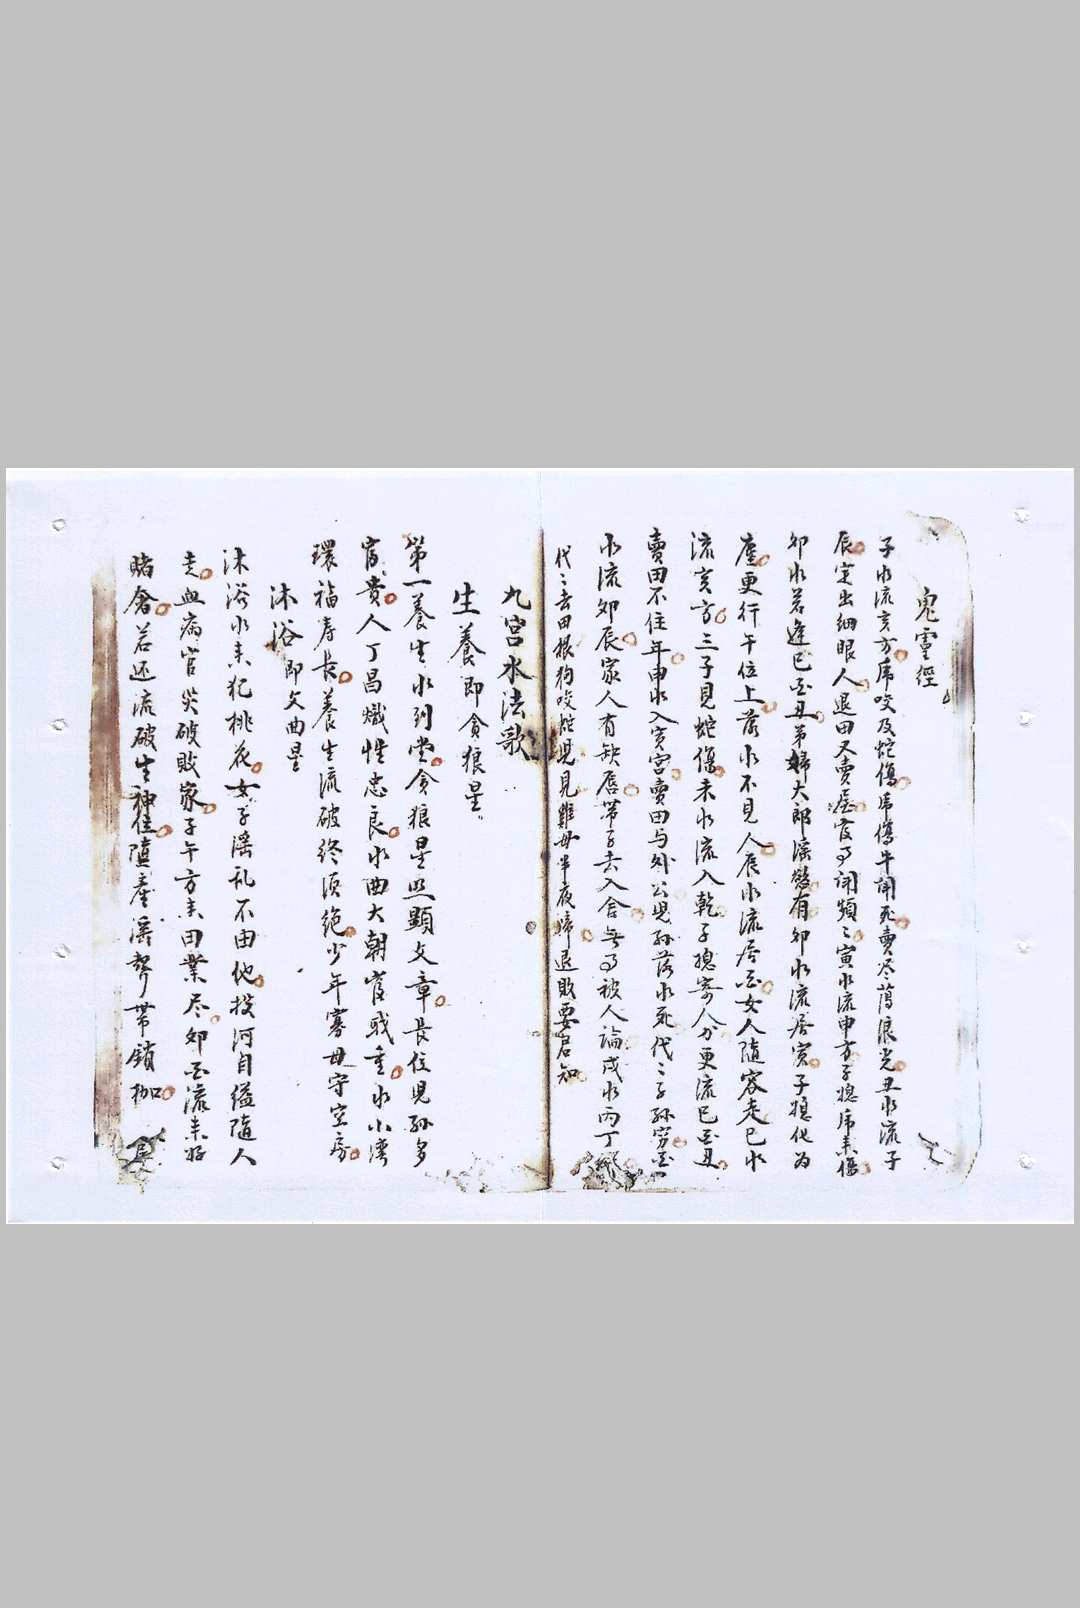 鬼靈經
子水流亥方虎咬及蛇傷虎傷牛鬪死賣尽蕩浪光丑水流子
辰定出細眼人退田又賣屋官司詞頻〻寅水流申方子媳虎来傷
卯水若逢巳酉丑弟婦大郎淫慾有卯水流居寅子媳化为
塵更行午位上落水不見人辰水流居酉女人隨客走巳水
流亥方三子見蛇傷未水流入乾子媳寄人分更流巳酉丑
賣田不住年申水入寅宮賣田与外公児孫落水死代〻子孫穷酉
水流卯辰家人有缺唇帶子去入舍無司被人論戌水丙丁
代〻去田根狗咬蛇児見雞母半夜啼退敗要君知
九宮水法歌
生養即貪狼星
第一養生水到堂貪狼星照顯文章長位児孫多
富貴人丁昌熾性忠良水曲大朝官职重水小湾
環福寿長養生流破终须绝少年寡母守空房
沐浴即文曲星
沐浴水来犯桃花女子淫乱不由他投河自縊隨人
走血病官災破敗家子午方来田業尽卯酉流来好
賭奢若还流破生神位墮產淫聲帶鎖枷